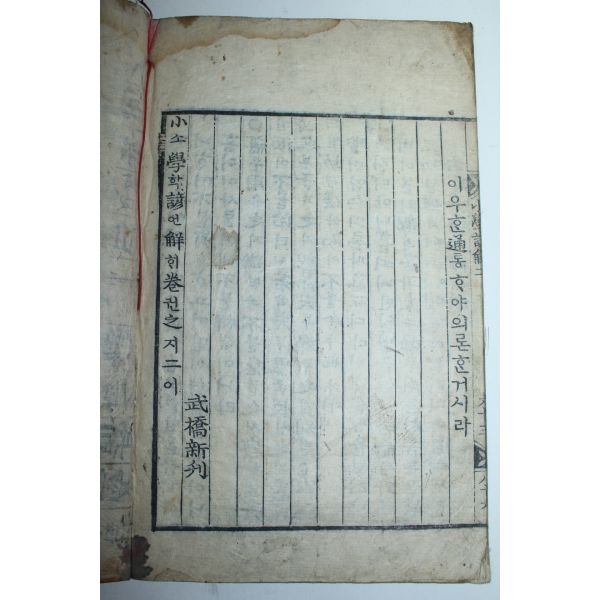 이우ᄒᆞᆫ通통ᄒᆞ야의론ᄒᆞᆫ거시라
武橋新刋
小쇼學ᄒᆞᆨ諺언解ᄒᆡ卷권之지二이